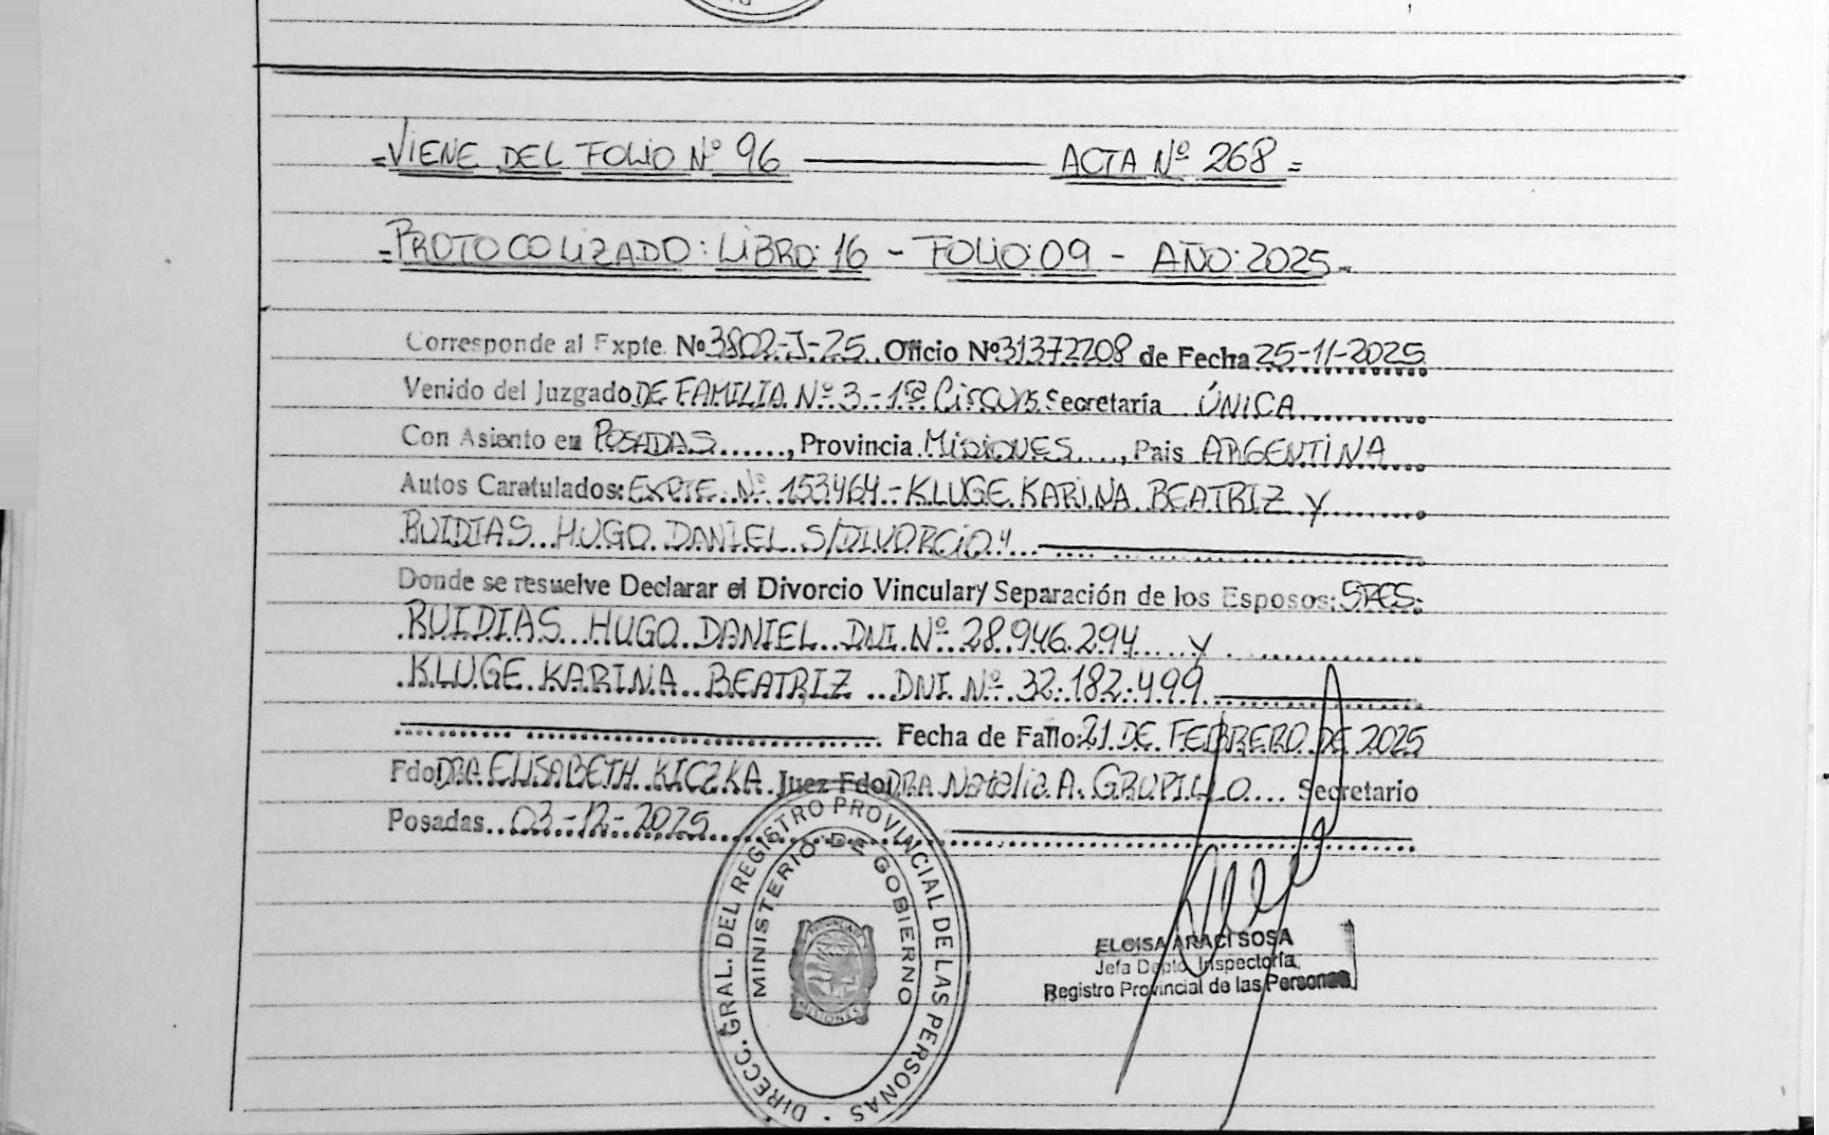 =VIENE DEL FOLIO Nº 96 ACTA Nº 268=
=PROTOCOLIZADO: LIBRO: 16 - FOLIO: 09 - AÑO: 2025.-
Corresponde al Expte. Nº 3802-J-25. Oficio Nº 31372208 de Fecha 25-11-2025
Venido del Juzgado DE FAMILIA Nº 3.- 1ra Circuns. Secretaría ÚNICA
Con Asiento en POSADAS......, Provincia MISIONES...., Pais ARGENTINA
Autos Caratulados: EXPTE. Nº 153464.- KLUGE KARINA BEATRIZ y
RUIDIAS HUGO DANIEL S/DIVORCIO"
Donde se resuelve Declarar el Divorcio Vincular y/ Separación de los Esposos: SRES.
RUIDIAS HUGO DANIEL DNI Nº 28.946.294 y
KLUGE KARINA BEATRIZ DNI Nº 32.182.499
Fecha de Fallo: 21 DE FEBRERO DE 2025
Fdo DRA ELISABETH KICZKA Juez Fdo DRA Natalia A. GRUPILLO.... Secretario
Posadas.. 03-12-2025
DIRECC. GRAL. DEL REGISTRO PROVINCIAL DE LAS PERSONAS -
MINISTERIO DE GOBIERNO
MISIONES
ELOISA ARACI SOSA
Jefa Depto. Inspectoría
Registro Provincial de las Personas